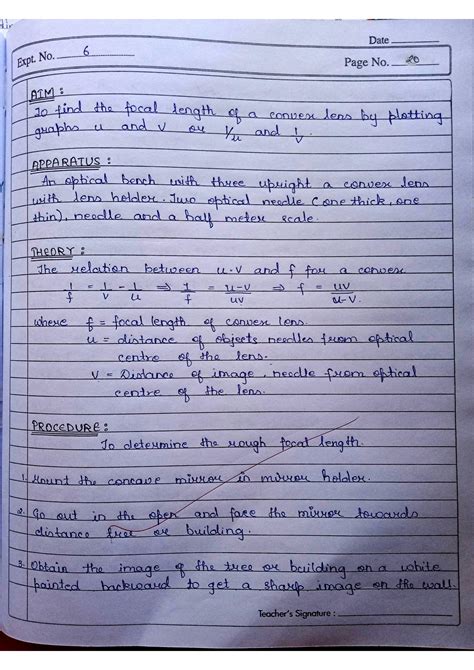 Date
Expt. No. 6
Page No. 20
AIM :
To find the focal length of a convex lens by plotting
graphs u and v or 1/u and 1/v.
APPARATUS :
An optical bench with three upright a convex lens
with lens holder. Two optical needle (one thick, one
thin), needle and a half meter scale.
THEORY :
The relation between u.v and f for a convex
1/f = 1/v - 1/u ⇒ 1/f = u-v/uv ⇒ f = uv/u-v.
where f = focal length of convex lens.
u = distance of objects needles from optical
centre of the lens.
v = Distance of image, needle from optical
centre of the lens.
PROCEDURE :
To determine the rough focal length.
1. Mount the concave mirror in mirror holder.
2. Go out in the open and face the mirror towards
distance tree or building.
3. Obtain the image of the tree or building on a white
painted backward to get a sharp image on the wall.
Teacher's Signature :